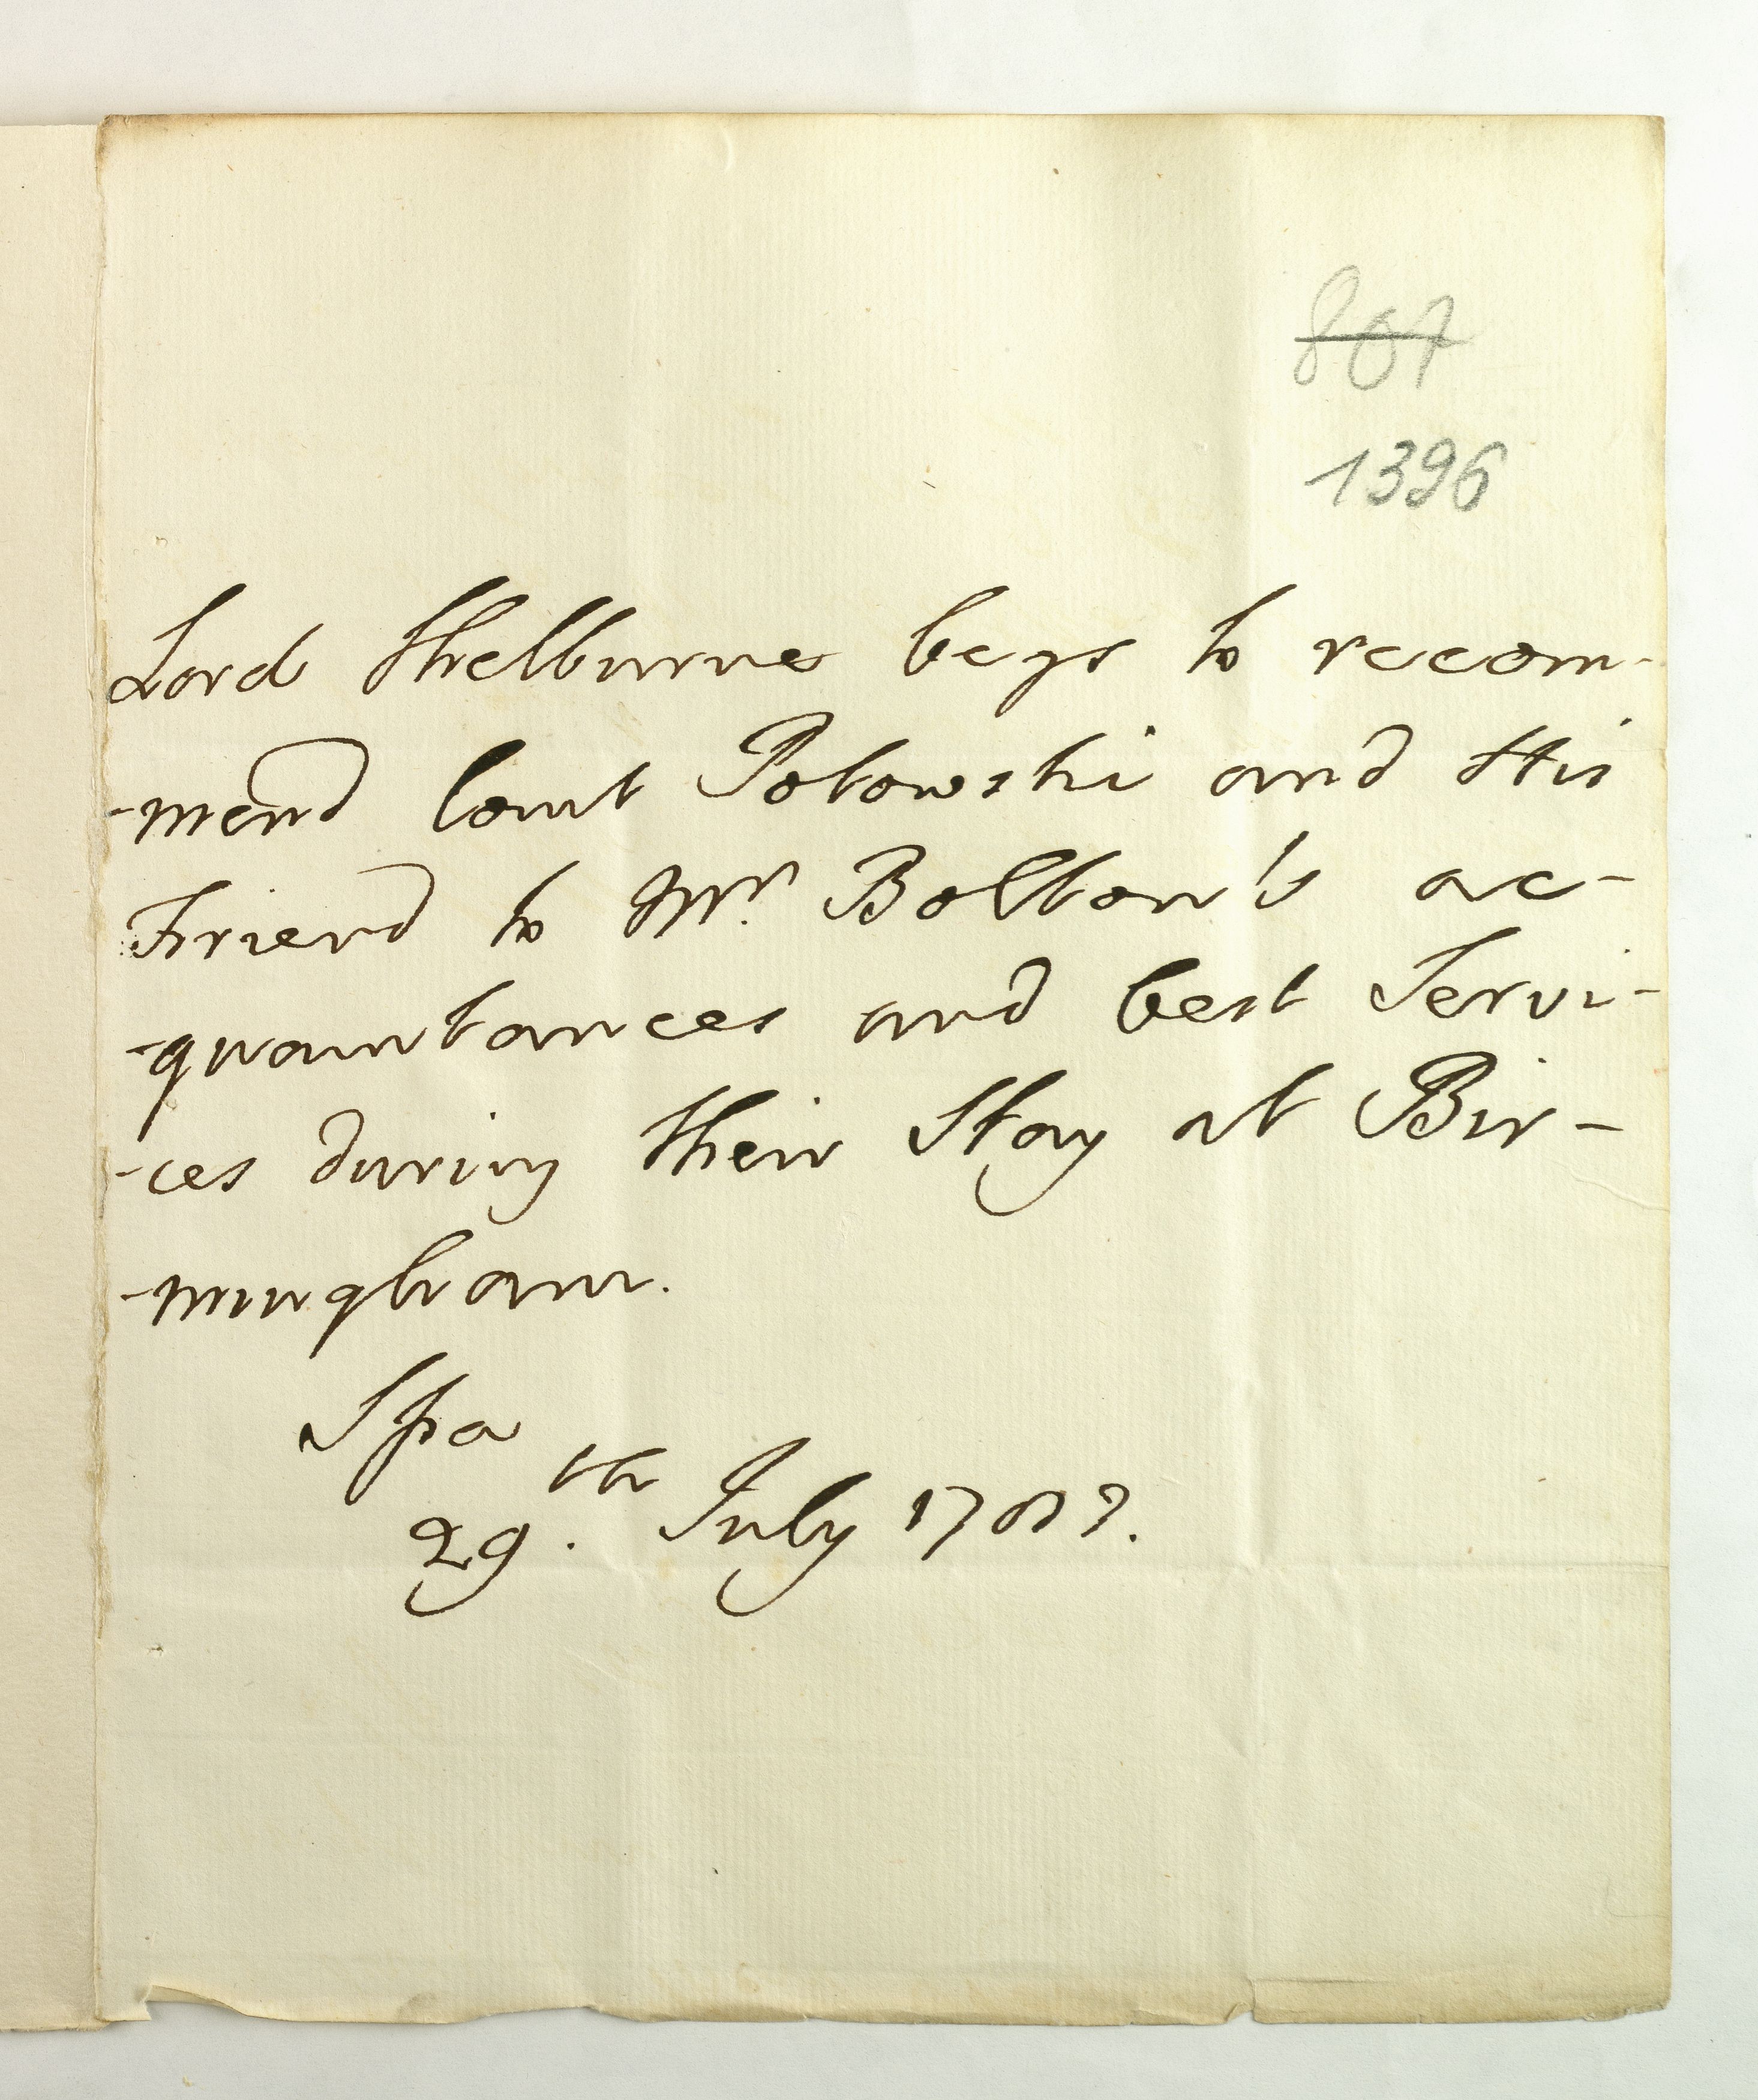 807
1396
Lord Shelburne begs to recom-
-mend Count Potowski and His
Friend to Mr. Bolton's ac-
-quaintances and best Servi-
-ces during their Stay at Bir-
-mingham.
Spa
29.th July 1783.